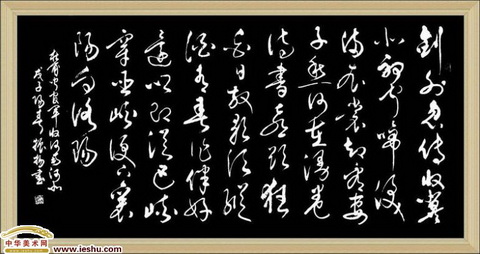 剑外忽传收蓟
北初闻涕泪
满衣裳却看妻
子愁何在漫卷
诗书喜欲狂
白日放歌须纵
酒青春作伴好
还乡即从巴峡
穿巫峡便下襄
阳向洛阳
杜甫闻官军收河南河北
戊子阳春
中华美术网
www.ieshu.com